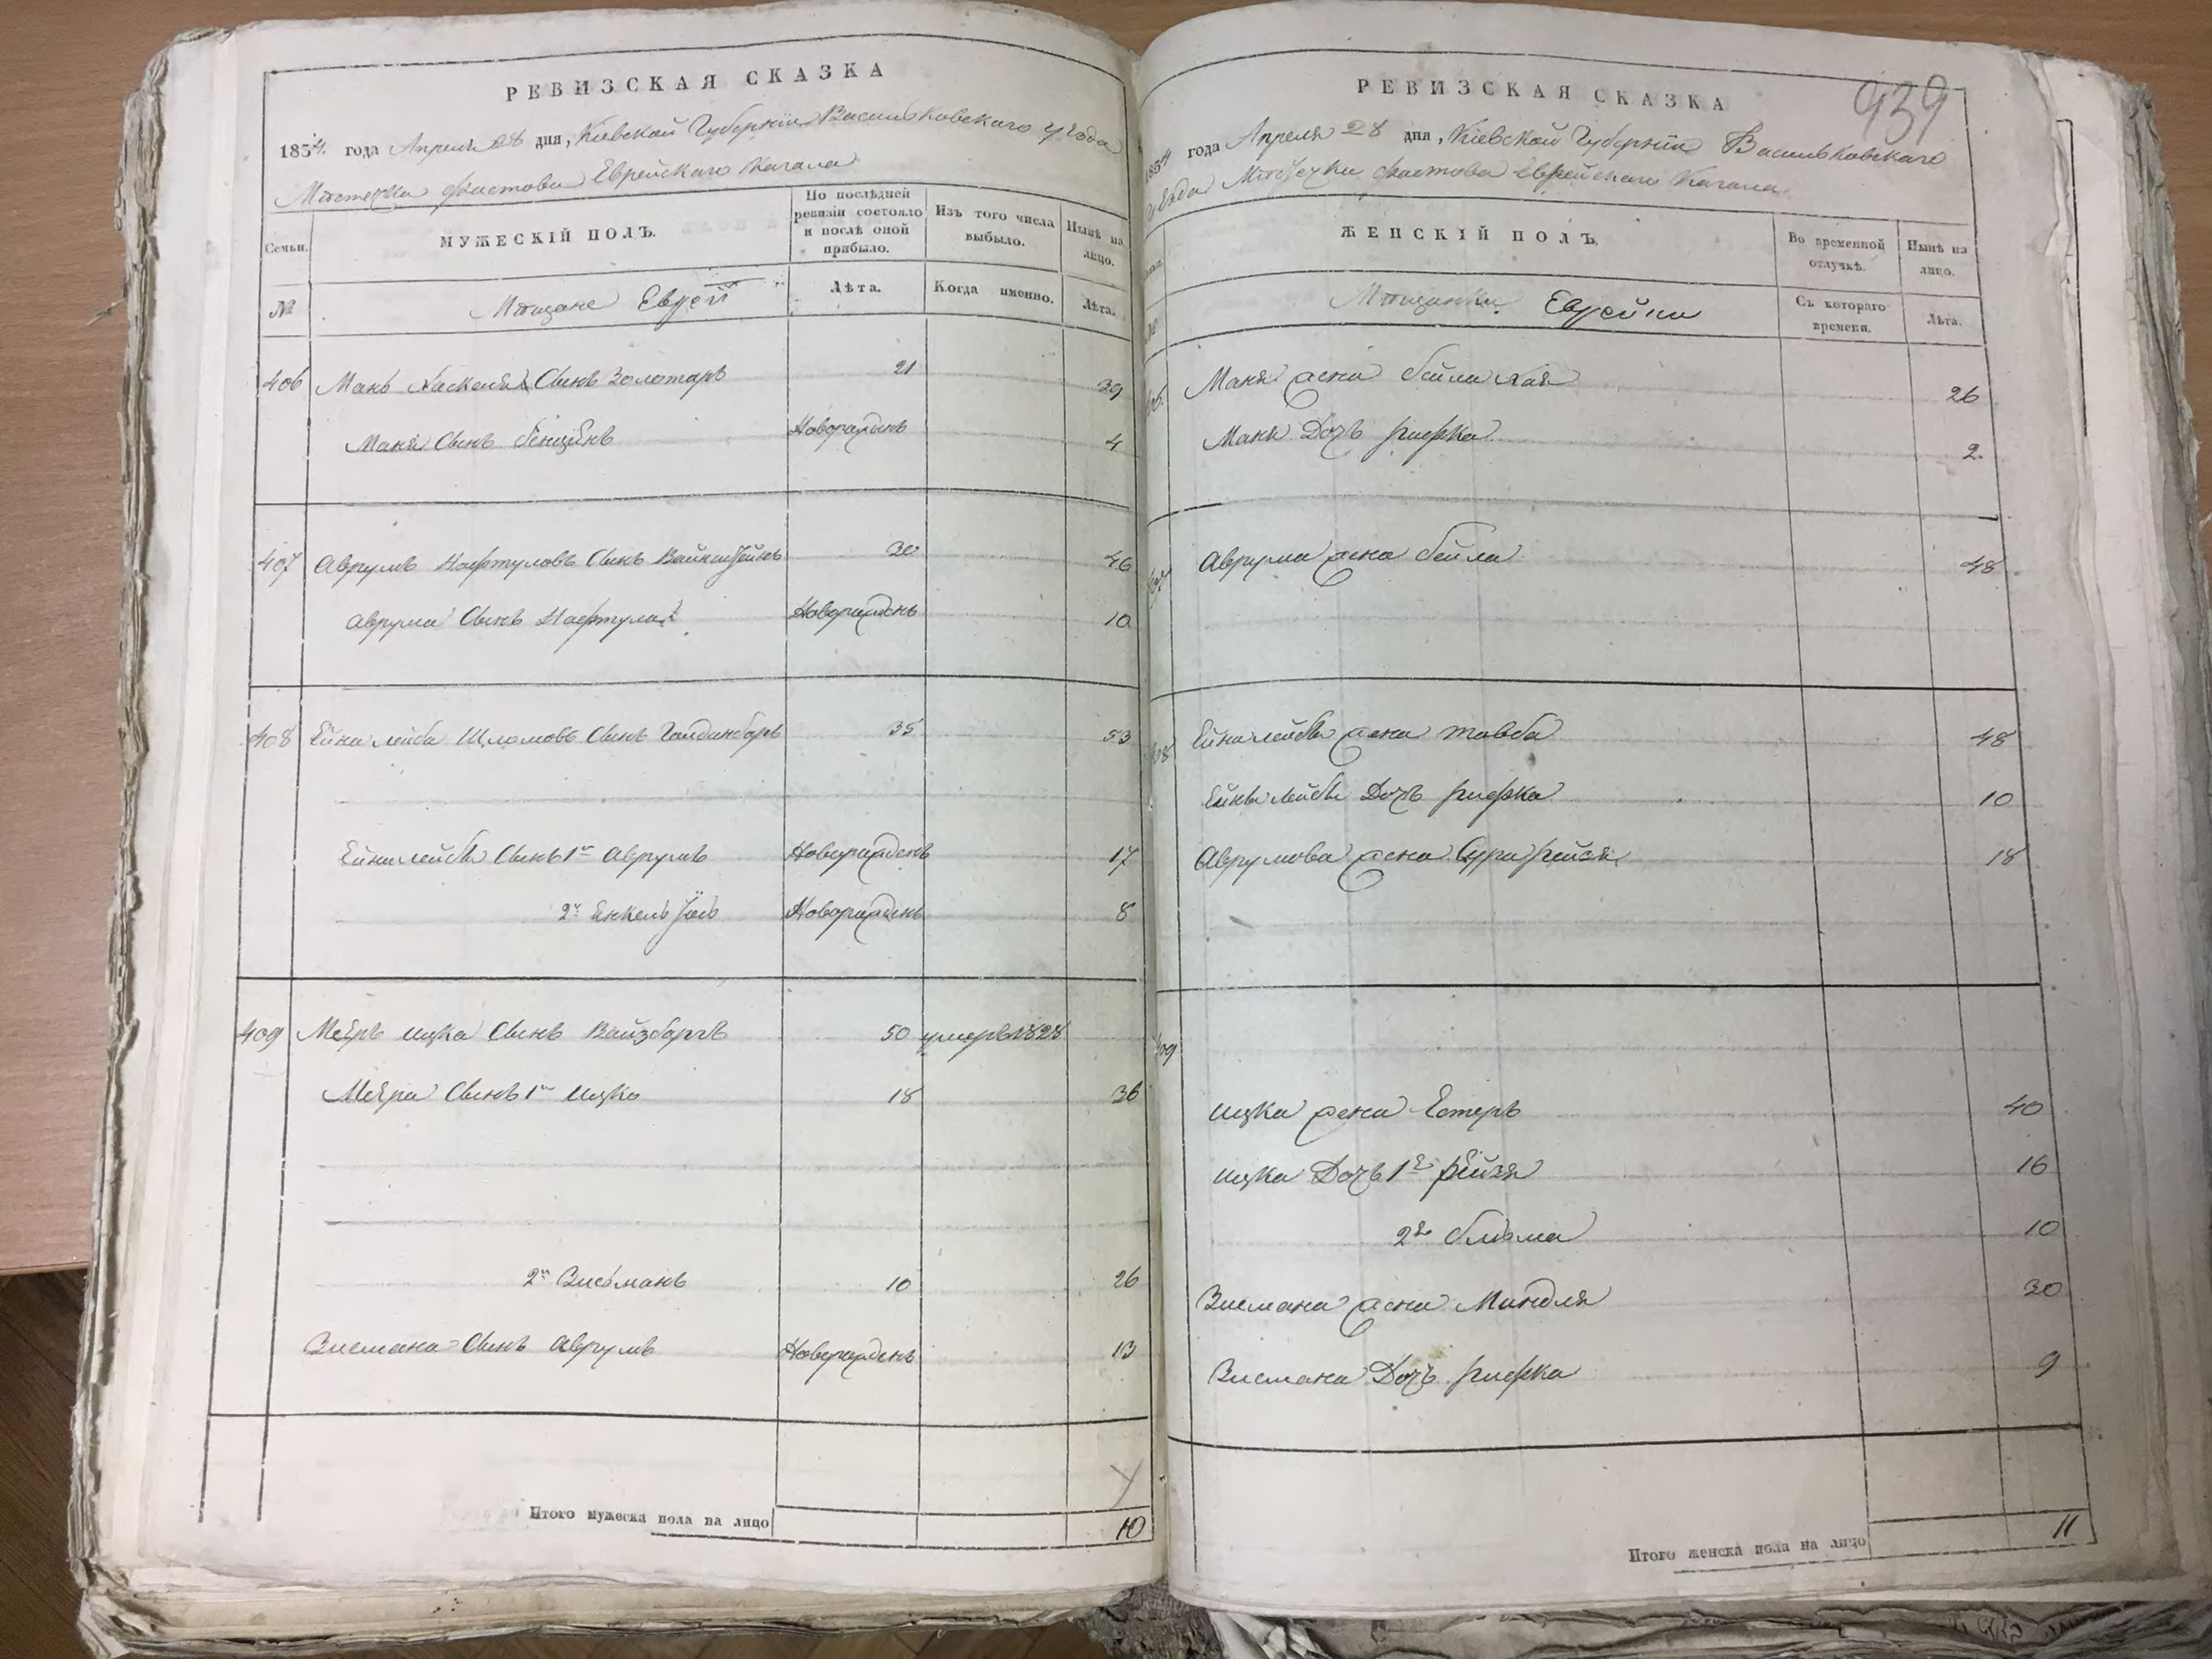 РЕВИЗСКАЯ СКАЗКА
1854. года Апреля 28 дня, Кіевской Губерніи Васильковскаго уѣзда
Мѣстечка Фастова Еврейскаго Кагала
Семьи.
МУЖЕСКІЙ ПОЛЪ.
По послѣдней ревизіи состояло и послѣ оной прибыло.
Изъ того числа выбыло.
Нынѣ на лицо.
№
Мѣщане Евреи
Лѣта.
Когда именно.
Лѣта.
406 Мань Хаскеля Сынъ Золотарь 21 39
Маня Сынъ Бенціонъ Новорожденъ 4
407 Аврумъ Нафтуловъ Сынъ 30 46
Аврума Сынъ Нафтула Новорожденъ 10
408 Ейна Лейба Шломовъ Сынъ 35 53
Ейналейбы Сынъ 1й Аврумъ Новорожденъ 17
2й Енкель Новорожденъ 8
409 Меѣръ Ицка Сынъ Вайзбаргъ 50 умеръ
Меѣра Сынъ 1й Ицко 18 36
2й Зисьманъ 10 26
Зисмана Сынъ Аврумъ Новорожденъ 13
Итого мужеска пола на лицо 10
939
РЕВИЗСКАЯ СКАЗКА
1854 года Апреля 28 дня, Кіевской Губерніи Васильковскаго
уѣзда Мѣстечка Фастова Еврейскаго Кагала
ЖЕНСКІЙ ПОЛЪ.
Во временной отлучкѣ.
Нынѣ на лицо.
Мѣщанки Еврейки
Съ котораго времени.
Лѣта.
406. Маня жена Бейла Хая 26
Маня Дочь Рифка 2.
407 Аврума жена Бейла 48
408 Ейналейбы жена Товба 48
Ейны Лейбы Дочь Рифка 10
Аврумова жена Сура Рейзя 18
409
Ицка жена Естеръ 40
Ицка Дочь 1я Рейзя 16
2я Блюма 10
Зисмана жена Миндля 30
Зисмана Дочь Рифка 9
Итого женска пола на лицо 11